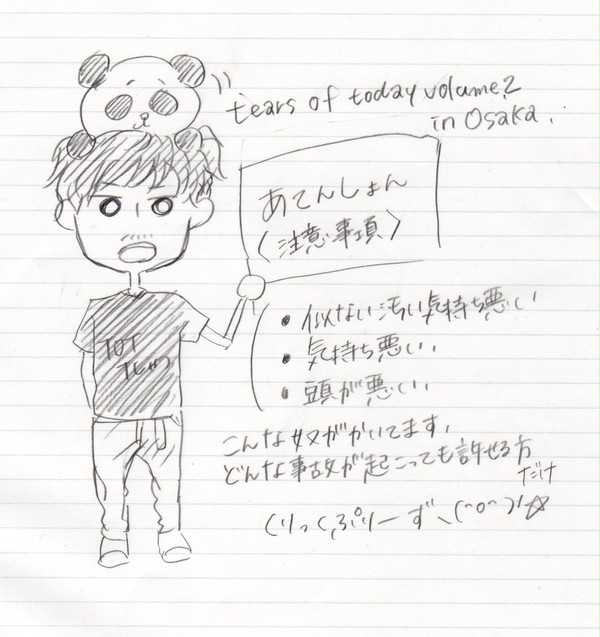 tears of today volume.2
in Osaka.
あてんしょん
〈注意事項〉
・似ない汚い気持ち悪い
・気持ち悪い、
・頭が悪い、
TOT
Tしゃつ
こんな奴がかいてます、
どんな事故が起こっても許せる方
だけ
くりっく、ぷりーず、(^o^)/☆